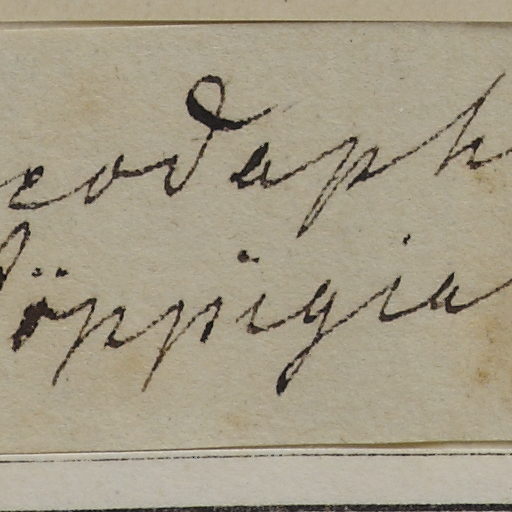 eodaph
öppigia